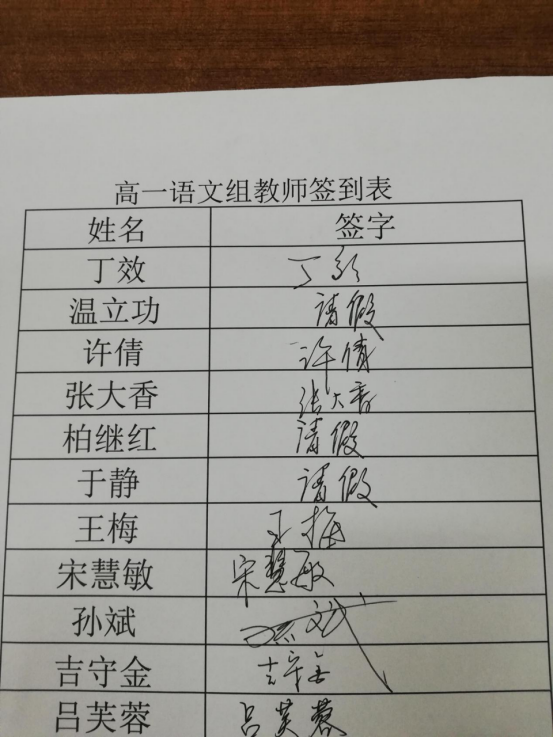 高一语文组教师签到表
姓名 签字
丁效 丁效
温立功 请假
许倩 许倩
张大香 张大香
柏继红 请假
于静 请假
王梅 王梅
宋慧敏 宋慧敏
孙斌 孙斌
吉守金 吉守金
吕芙蓉 吕芙蓉